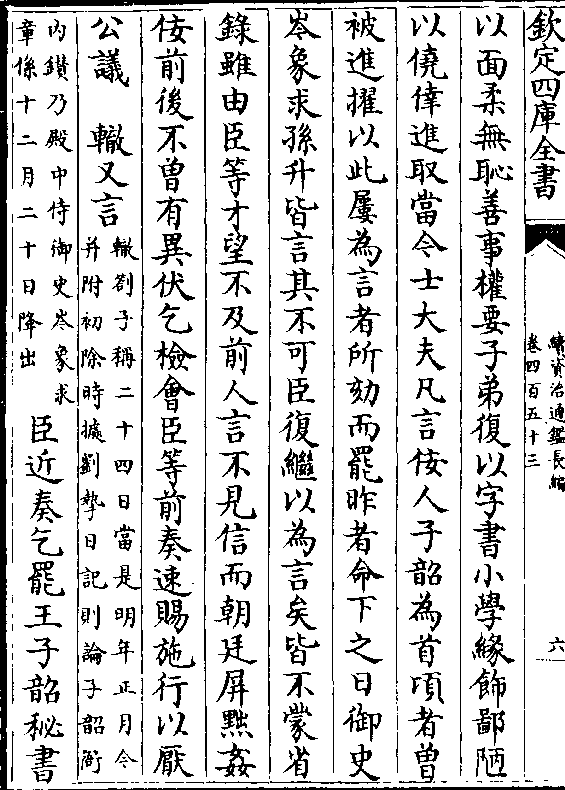 欽定四庫全書
續資治通鑑長編
卷四百五十三
六
以面柔無恥善事權要子弟復以字書小學緣飾鄙陋
以僥倖進取當今士大夫凡言佞人子韶為首頃者曽
被進擢以此屢為言者所劾而罷昨者命下之日御史
岑象求孫升皆言其不可臣復繼以為言矣皆不蒙省
錄雖由臣等才望不及前人言不見信而朝廷屏黜姦
佞前後不曽有異伏乞檢會臣等前奏速賜施行以厭
公議　轍又言
轍劄子稱二十四日當是明年正月今
并附初除時據劉摯日記則論子韶衕
內鑚乃殿中侍御史岑象求
章係十二月二十日降出
臣近奏乞罷王子韶秘書